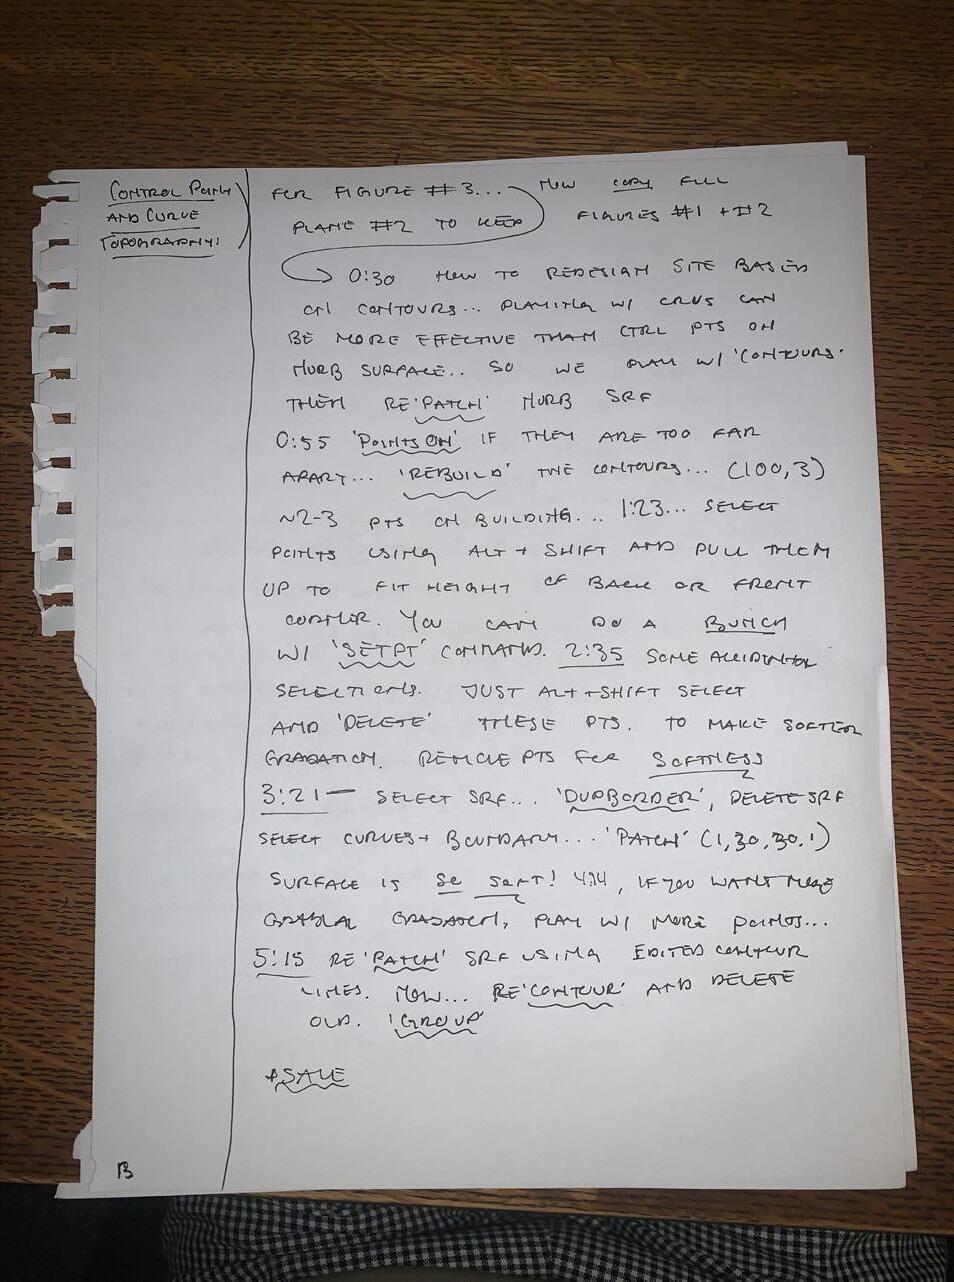 CONTROL POINT
AND CURVE
TOPOGRAPHY:
FOR FIGURE #3... NOW COPY FULL
PLANE #2 TO KEEP FIGURES #1 + #2
0:30 HOW TO REDESIGN SITE BASED
ON CONTOURS... PLAYING W/ CRVS CAN
BE MORE EFFECTIVE THAN CTRL PTS ON
NURB SURFACE.. SO WE PLAY W/ 'CONTOURS'
THEN RE'PATCH' NURB SRF
0:55 'POINTS ON' IF THEY ARE TOO FAR
APART... 'REBUILD' THE CONTOURS... (100,3)
~2-3 PTS ON BUILDING... 1:23... SELECT
POINTS USING ALT + SHIFT AND PULL THEM
UP TO FIT HEIGHT OF BACK OR FRONT
CORNER. YOU CAN DO A BUNCH
W/ 'SETPT' COMMAND. 2:35 SOME ACCIDENTAL
SELECTIONS. JUST ALT + SHIFT SELECT
AND 'DELETE' THESE PTS. TO MAKE SOFTER
GRADATION. REMOVE PTS FOR SOFTNESS
3:21 — SELECT SRF... 'DUPBORDER', DELETE SRF
SELECT CURVES + BOUNDARY... 'PATCH' (1,30,30,1)
SURFACE IS SO SOFT! 4:14, IF YOU WANT MORE
GRADUAL GRADATION, PLAY W/ MORE POINTS...
5:15 RE'PATCH' SRF USING EDITED CONTOUR
LINES. NOW... RE'CONTOUR' AND DELETE
OLD. 'GROUP'
+SAVE
B